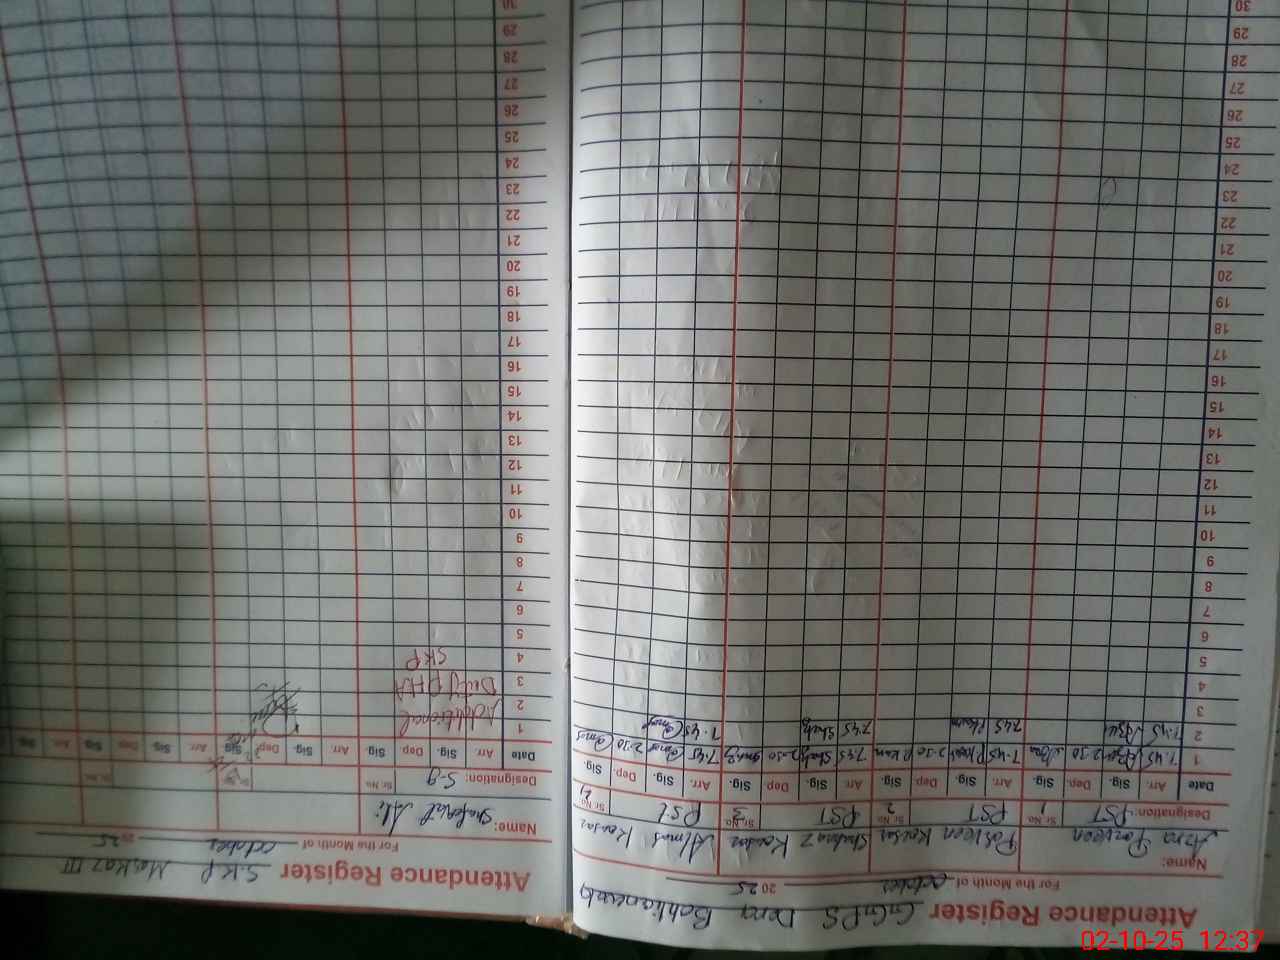 Attendance Register GGPS Dera
For the Month of october 2025
Name: Azra Parveen Parveen Kousar Shahnaz Kousar Almas Kousar
Designation: PST Sr.No. 1 PST Sr.No. 2 PST Sr.No. 3 PST Sr.No. 4
Date Arr. Sig. Dep. Sig. Arr. Sig. Dep. Sig. Arr. Sig. Dep. Sig. Arr. Sig. Dep. Sig.
1 7:45 2:30 7:45 2:30 7:45 2:30 7:45 2:30
2 7:45 7:45 7:45 7:45
3
4
5
6
7
8
9
10
11
12
13
14
15
16
17
18
19
20
21
22
23
24
25
26
27
28
29
30
Attendance Register S.K.P Markaz III
For the Month of october 2025
Name: Shafqat Ali
Designation: S-g Sr.No. Sr.No. Sr.No.
Date Arr. Sig. Dep Sig. Arr. Sig. Dep. Sig. Arr. Sig. Dep. Sig. Arr. Sig. Sig.
1 Additional
2
3 Duty PHA
4 SKP
5
6
7
8
9
10
11
12
13
14
15
16
17
18
19
20
21
22
23
24
25
26
27
28
29
30
02-10-25 12:37